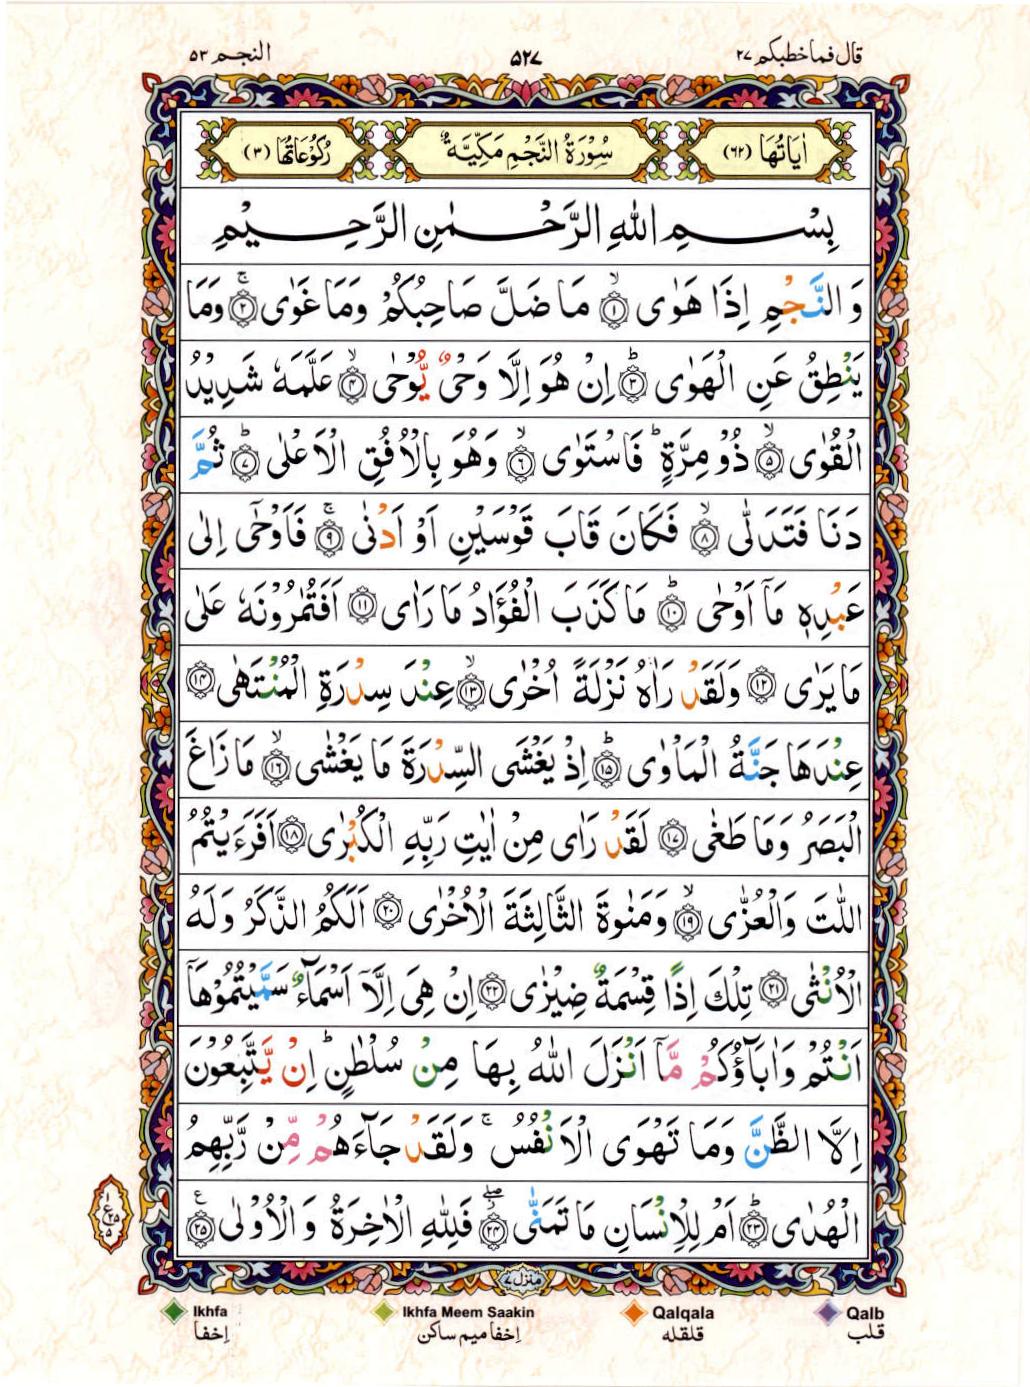 قال فما خطبكم ۲۷
۵۲۷
النجم ۵۳
اٰيَاتُهَا (۶۲)
سُوْرَةُ النَّجْمِ مَكِّيَّةٌ
رُكُوْعَاتُهَا (۳)
بِسْمِ اللّٰهِ الرَّحْمٰنِ الرَّحِيْمِ
وَالنَّجْمِ اِذَا هَوٰى ۙ﴿۱﴾ مَا ضَلَّ صَاحِبُكُمْ وَمَا غَوٰى ۚ﴿۲﴾ وَمَا
يَنْطِقُ عَنِ الْهَوٰى ؕ﴿۳﴾ اِنْ هُوَ اِلَّا وَحْىٌ يُّوْحٰى ۙ﴿۴﴾ عَلَّمَهٗ شَدِيْدُ
الْقُوٰى ۙ﴿۵﴾ ذُوْ مِرَّةٍ ؕ فَاسْتَوٰى ۙ﴿۶﴾ وَهُوَ بِالْاُفُقِ الْاَعْلٰى ؕ﴿۷﴾ ثُمَّ
دَنَا فَتَدَلّٰى ۙ﴿۸﴾ فَكَانَ قَابَ قَوْسَيْنِ اَوْ اَدْنٰى ۚ﴿۹﴾ فَاَوْحٰۤى اِلٰى
عَبْدِهٖ مَاۤ اَوْحٰى ؕ﴿۱۰﴾ مَا كَذَبَ الْفُؤَادُ مَا رَاٰى ﴿۱۱﴾ اَفَتُمٰرُوْنَهٗ عَلٰى
مَا يَرٰى ﴿۱۲﴾ وَلَقَدْ رَاٰهُ نَزْلَةً اُخْرٰى ۙ﴿۱۳﴾ عِنْدَ سِدْرَةِ الْمُنْتَهٰى ﴿۱۴﴾
عِنْدَهَا جَنَّةُ الْمَاْوٰى ؕ﴿۱۵﴾ اِذْ يَغْشَى السِّدْرَةَ مَا يَغْشٰى ۙ﴿۱۶﴾ مَا زَاغَ
الْبَصَرُ وَمَا طَغٰى ﴿۱۷﴾ لَقَدْ رَاٰى مِنْ اٰيٰتِ رَبِّهِ الْكُبْرٰى ﴿۱۸﴾ اَفَرَءَيْتُمُ
اللّٰتَ وَالْعُزّٰى ۙ﴿۱۹﴾ وَمَنٰوةَ الثَّالِثَةَ الْاُخْرٰى ﴿۲۰﴾ اَلَكُمُ الذَّكَرُ وَلَهُ
الْاُنْثٰى ﴿۲۱﴾ تِلْكَ اِذًا قِسْمَةٌ ضِيْزٰى ﴿۲۲﴾ اِنْ هِىَ اِلَّاۤ اَسْمَآءٌ سَمَّيْتُمُوْهَاۤ
اَنْتُمْ وَاٰبَآؤُكُمْ مَّاۤ اَنْزَلَ اللّٰهُ بِهَا مِنْ سُلْطٰنٍ ؕ اِنْ يَّتَّبِعُوْنَ
اِلَّا الظَّنَّ وَمَا تَهْوَى الْاَنْفُسُ ۚ وَلَقَدْ جَآءَهُمْ مِّنْ رَّبِّهِمُ
الْهُدٰى ؕ﴿۲۳﴾ اَمْ لِلْاِنْسَانِ مَا تَمَنّٰى ۖ﴿۲۴﴾ فَلِلّٰهِ الْاٰخِرَةُ وَالْاُوْلٰى ﴿۲۵﴾ ع
۱
ع
۲۵
۵
منزل ۷
Ikhfa
إخفا
Ikhfa Meem Saakin
إخفا ميم ساكن
Qalqala
قلقله
Qalb
قلب